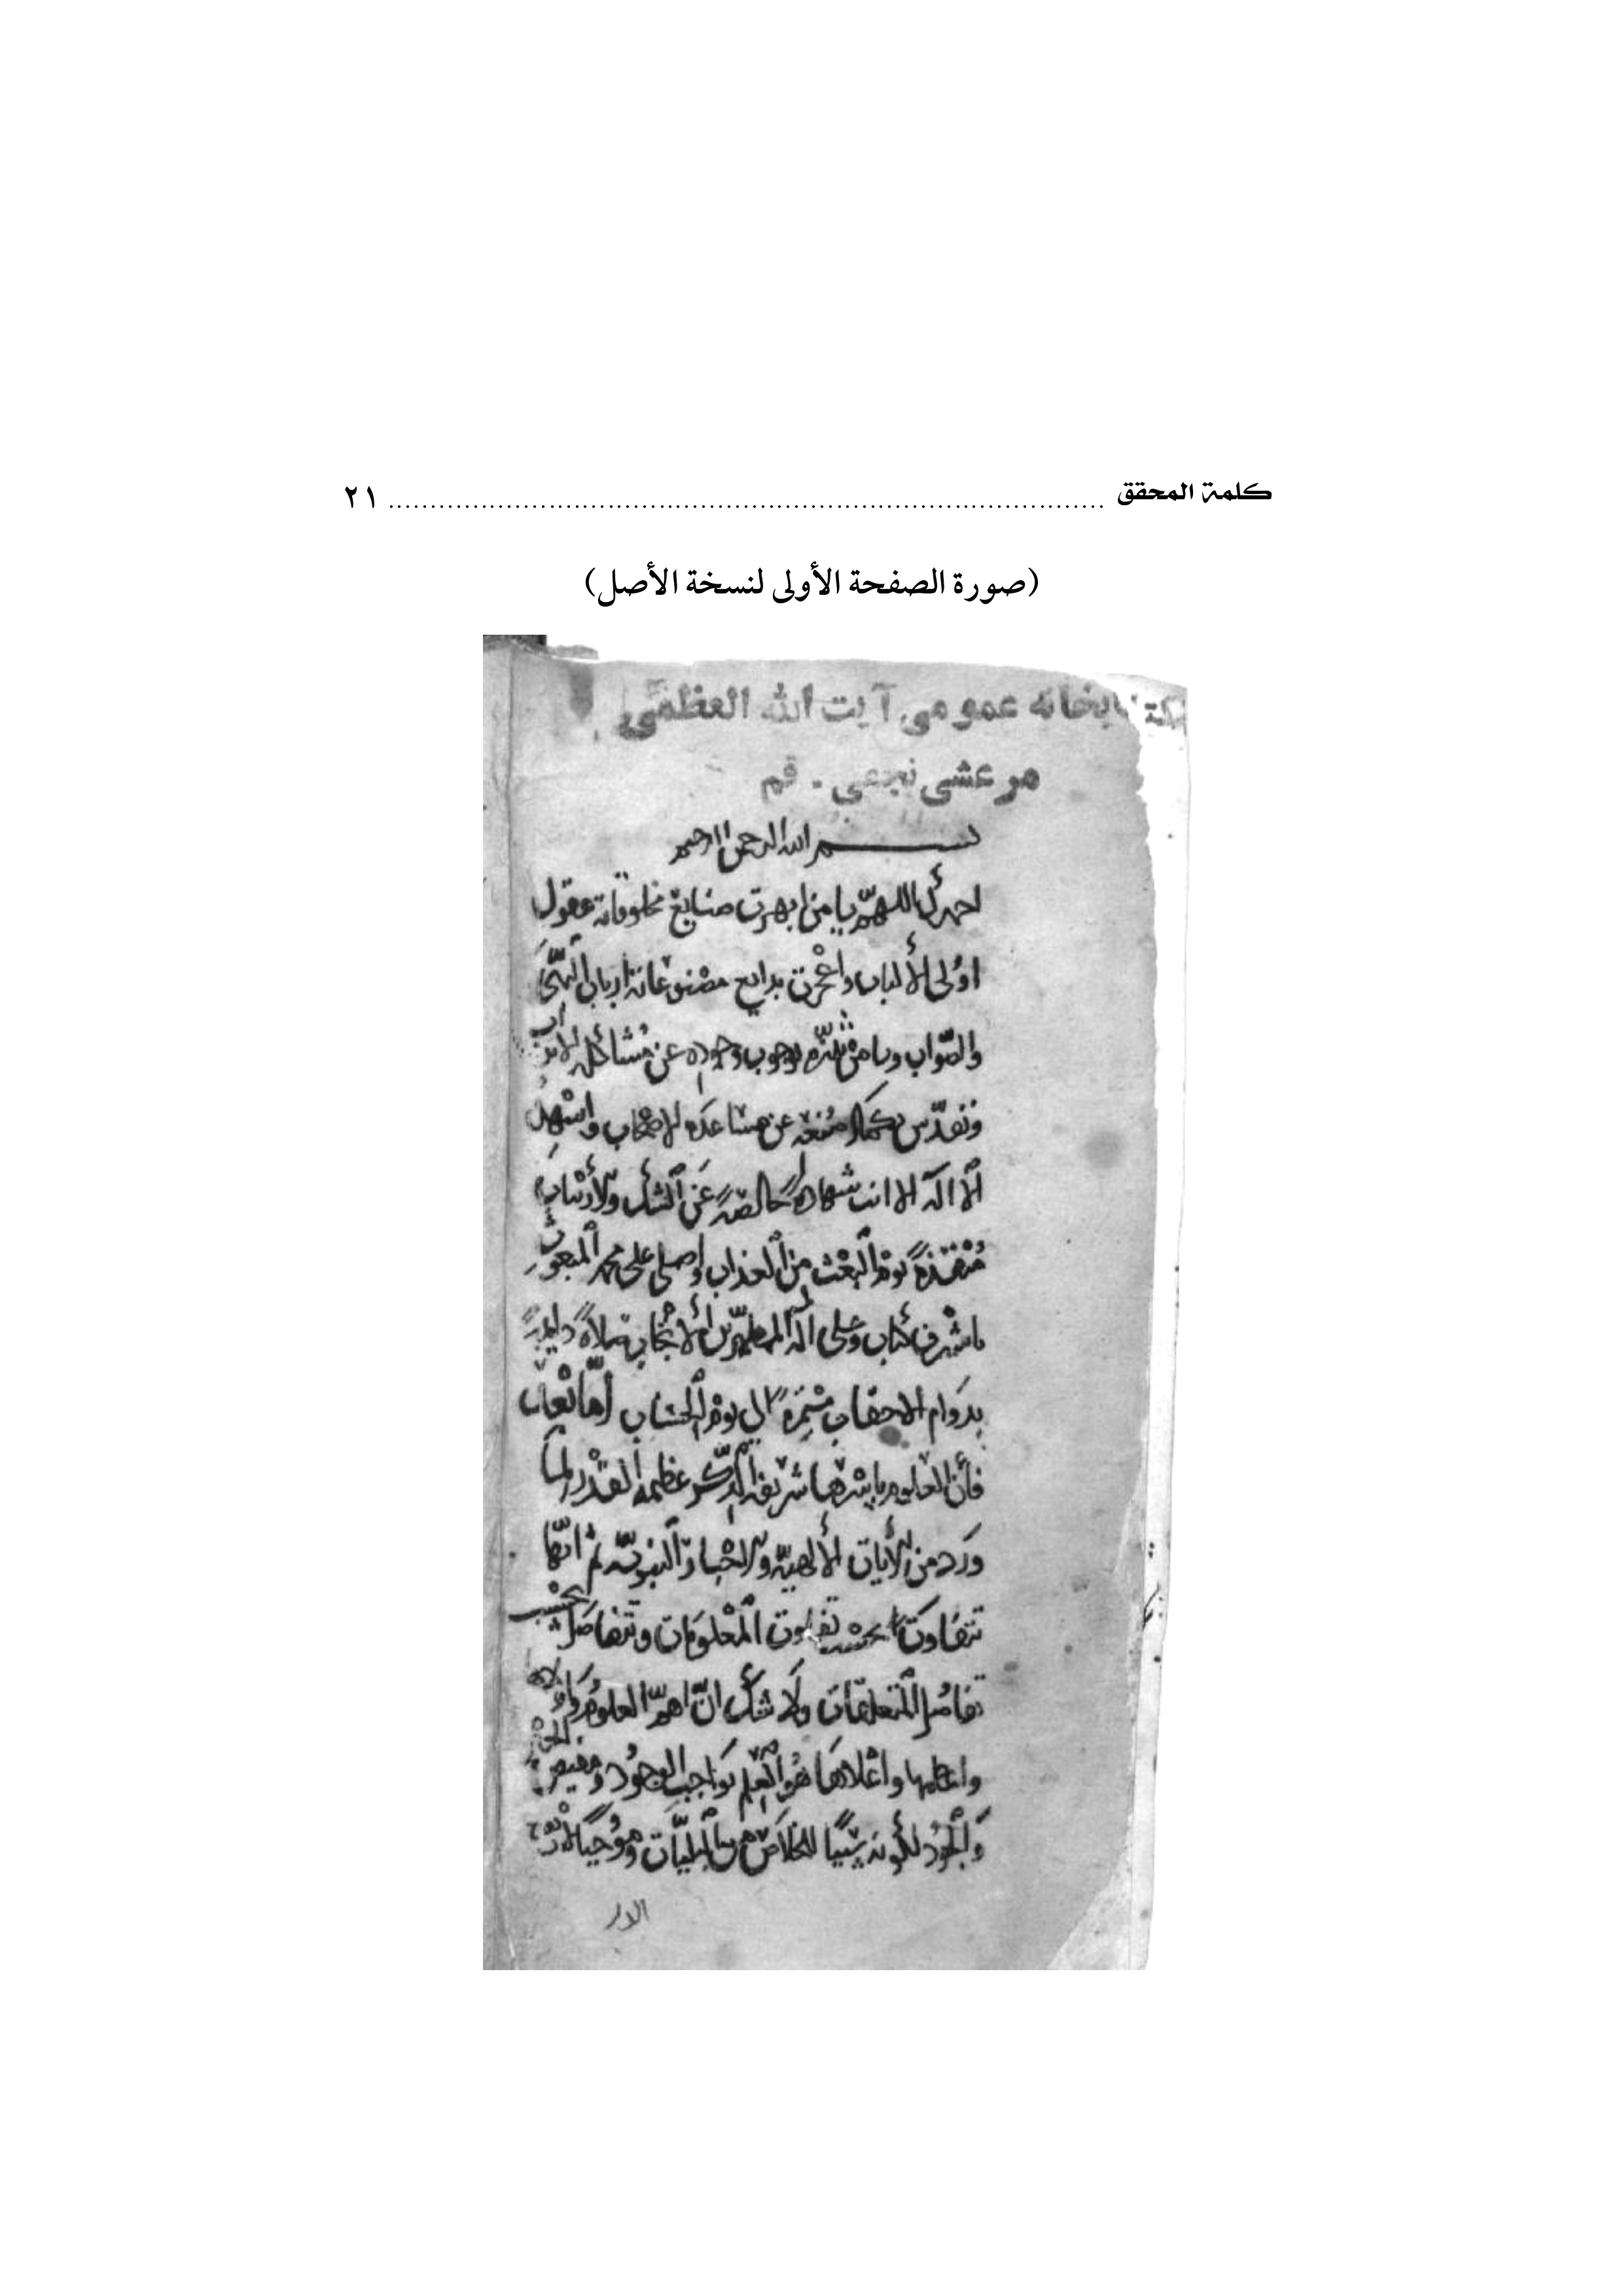 كلمة المحقق ........................................................................................ ٢١
(صورة الصفحة الأولى لنسخة الأصل)
كتابخانه عمومی آیت الله العظمی
مرعشی نجفی - قم
بسم الله الرحمن الرحيم
احمدك اللهمّ يا من ابهرت صنايع مخلوقاته عقول
اوُلى الألباب واعْجزت بدايع مصْنوعاته ارباب النهى
والصّواب ويا من تنزّه بوجوب وجوده عن مُشاكلة
وتقدّس بكمال عن مساعدة الاصْحاب واشْهد
ألّا اله الا انت شهادةً خالصةً عَن الشكّ والأرْتياب
مُنْقذةً يومْ البعْث من العذاب واصلى على محمد المبعوث
باشْرف كتاب وعلى آله المطهّرين الأنْجاب صلاةً دايمةً
بدَوام الاحقاب مسْتمرّةً الى يومْ الحسَاب أمّا بعْد
فأنّ العلوم باسْرها شريفة الذّكر عظيمة القدْر لما
ورَد من الأيات الألهيّة والاخْبار النبويّة ثم انّها
تتفاوَت بحسْب تفاوت المعْلومَات وتتفاضل بحسْب
تفاضُل المتعلّقات ولَا شكّ انّ اهمّ العلوُم
واعظمها واعْلاهَا هُو العْلم بوَاجب الوجوُد ومفيض
وَالجوُد لكونه للخلاَصْ من البليّات